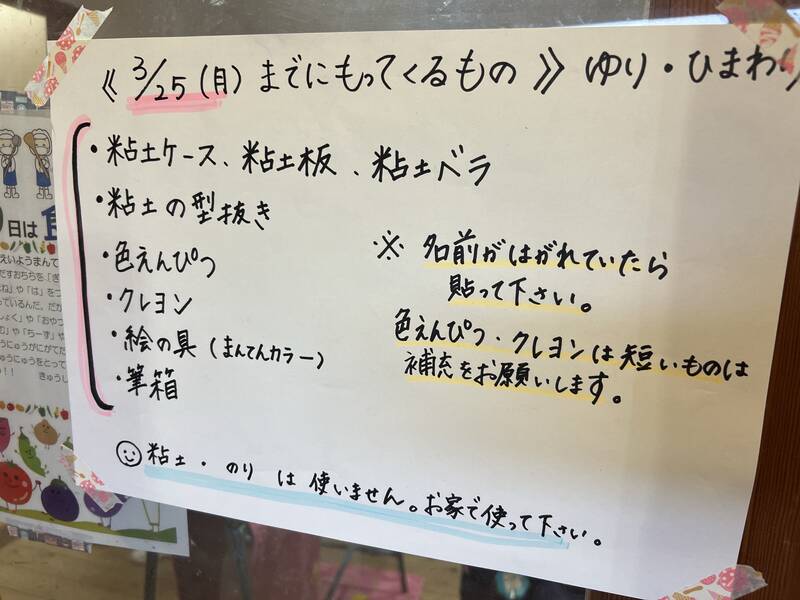 《 3/25(月)までにもってくるもの 》 ゆり・ひまわり
・粘土ケース、粘土板、粘土ベラ
・粘土の型抜き
・色えんぴつ
・クレヨン
・絵の具(まんてんカラー)
・筆箱
※ 名前がはがれていたら
貼って下さい。
色えんぴつ・クレヨンは短いものは
補充をお願いします。
粘土・のりは使いません。お家で使って下さい。
日は
えいようまんて
だすおちちを、「ぎ
ね」や「は」をつ
っているんだ。だか
しょく」や「おやつ
む」や「ちーず」や
ゅうにゅうがにがてだ
ゅうにゅうをとって
!!
きゅうし